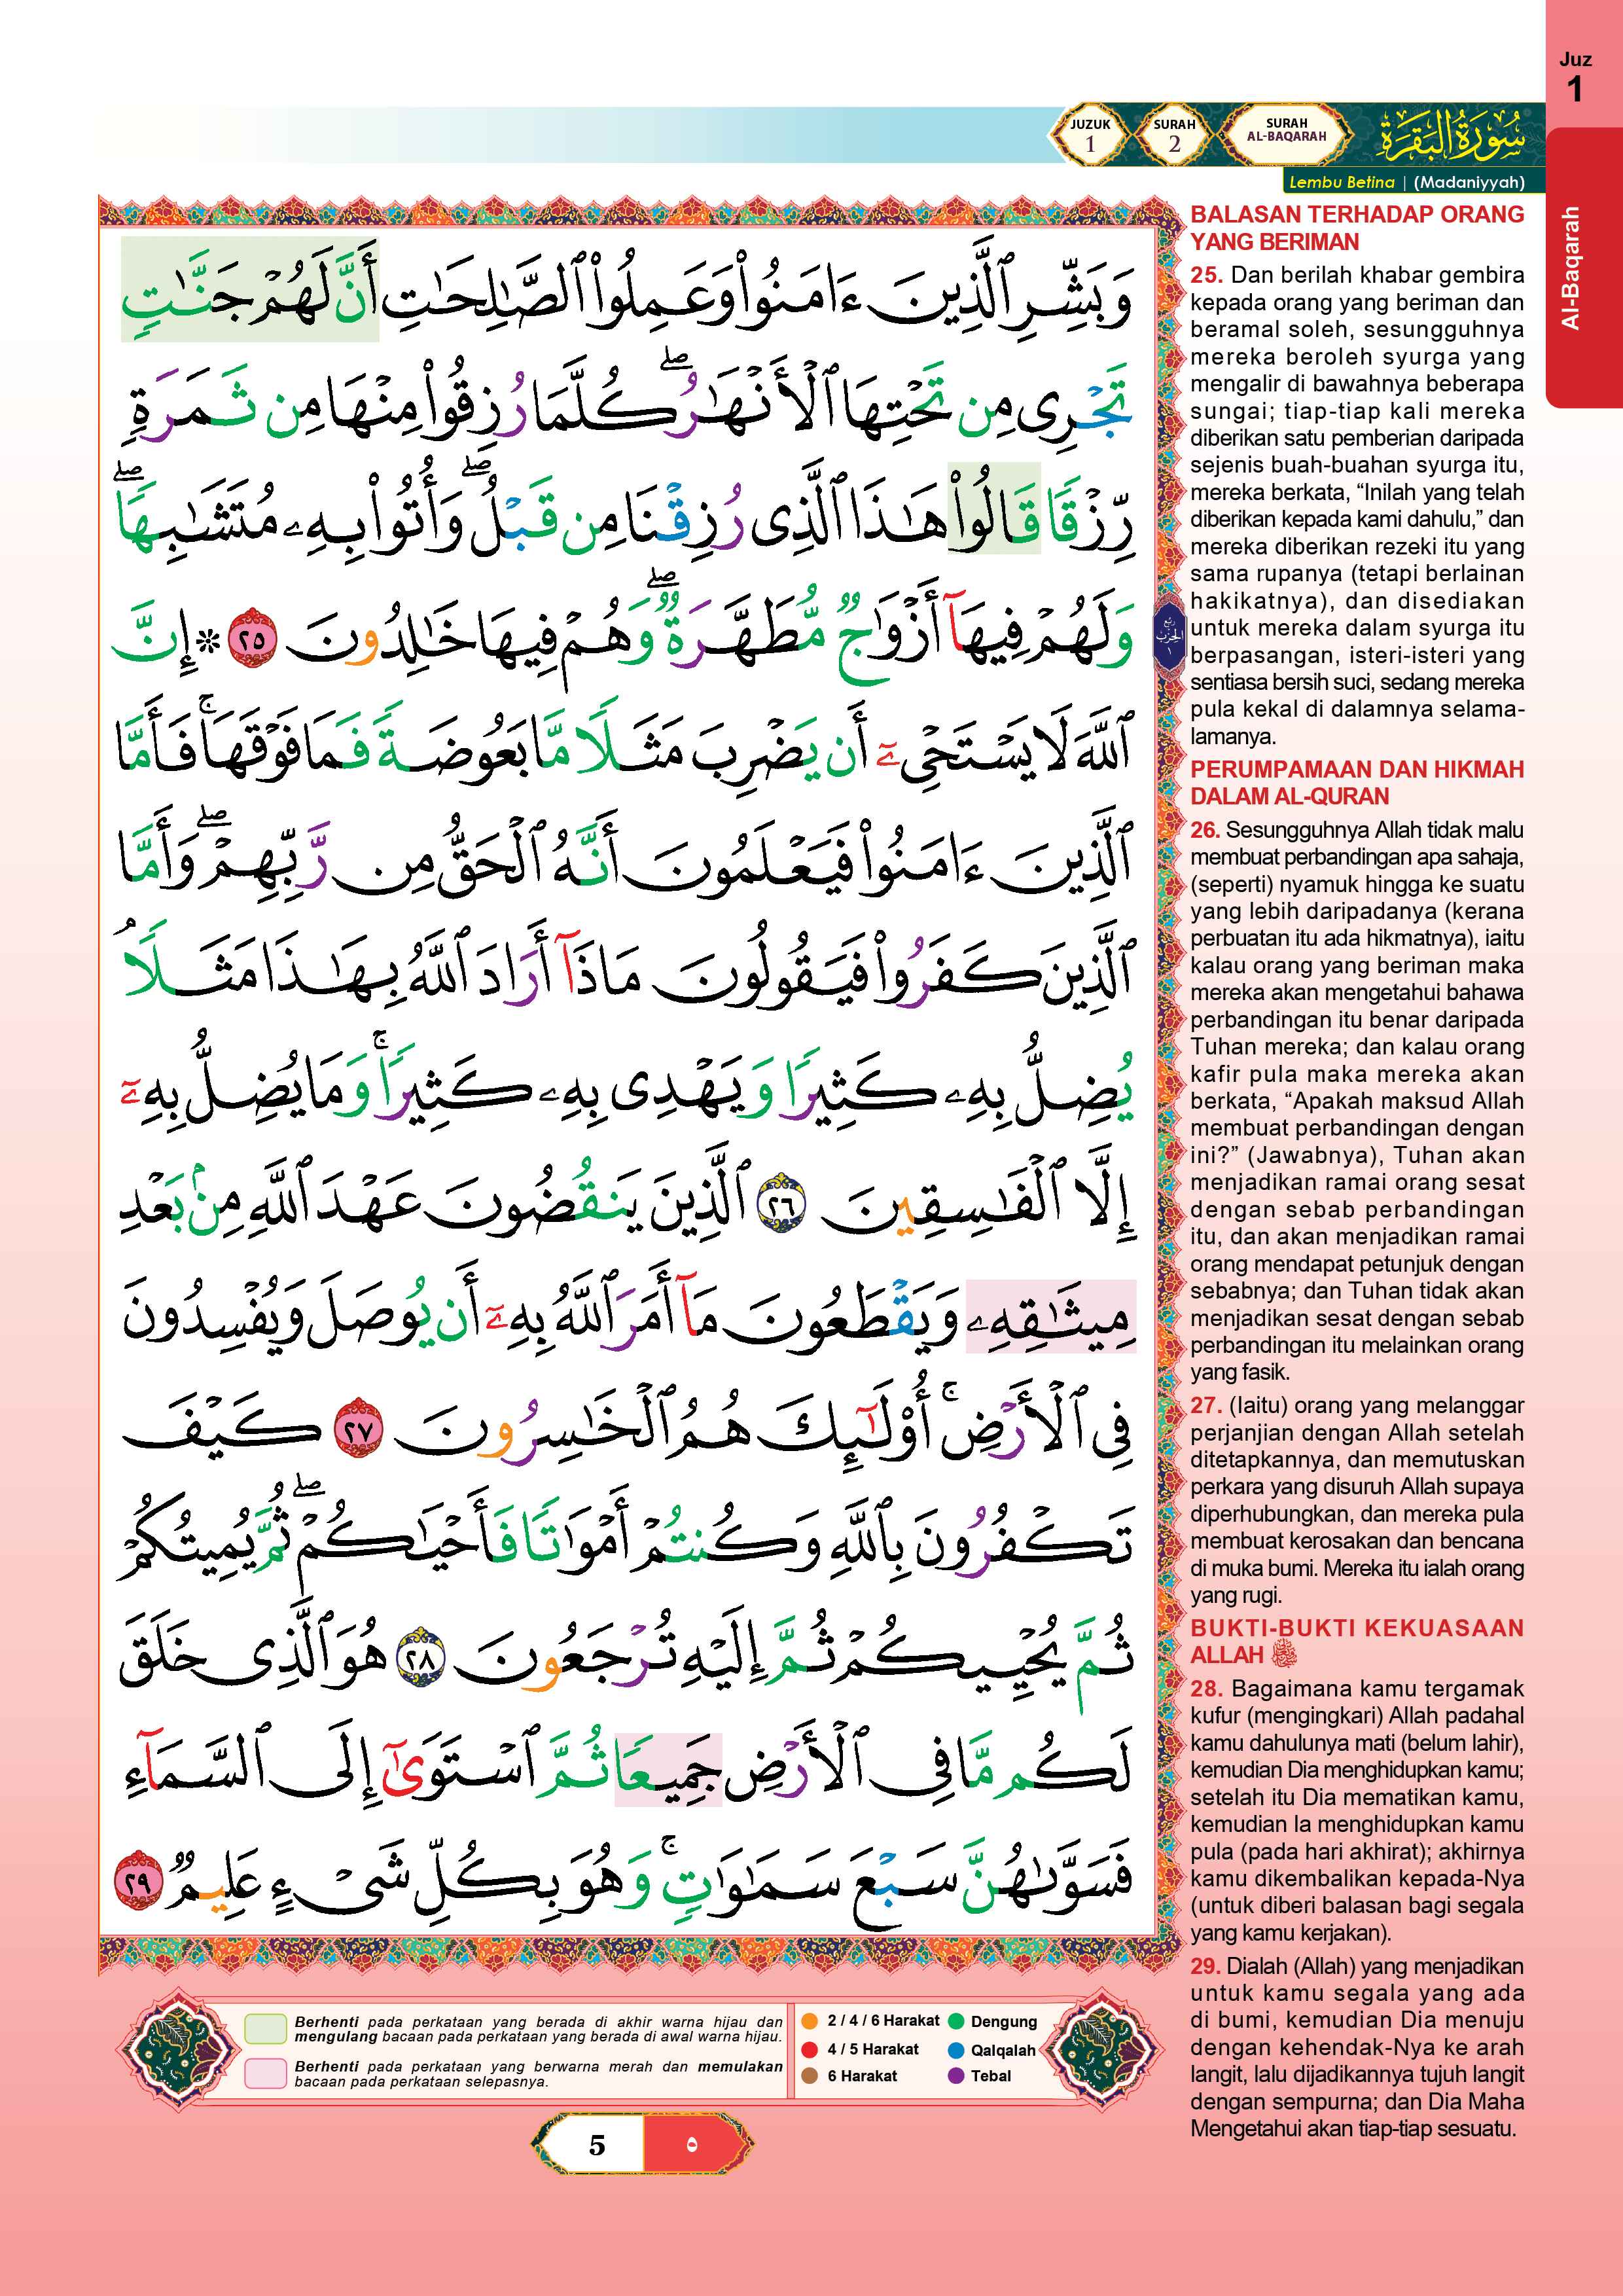 Juz
1
Al-Baqarah
JUZUK
1
SURAH
2
SURAH
AL-BAQARAH
سُورَةُ البَقَرَةِ
Lembu Betina | (Madaniyyah)
وَبَشِّرِ ٱلَّذِينَ ءَامَنُوا۟ وَعَمِلُوا۟ ٱلصَّـٰلِحَـٰتِ أَنَّ لَهُمْ جَنَّـٰتٍ
تَجْرِى مِن تَحْتِهَا ٱلْأَنْهَـٰرُ ۖ كُلَّمَا رُزِقُوا۟ مِنْهَا مِن ثَمَرَةٍ
رِّزْقًا قَالُوا۟ هَـٰذَا ٱلَّذِى رُزِقْنَا مِن قَبْلُ ۖ وَأُتُوا۟ بِهِۦ مُتَشَـٰبِهًا ۖ
وَلَهُمْ فِيهَآ أَزْوَٰجٌ مُّطَهَّرَةٌ ۖ وَهُمْ فِيهَا خَـٰلِدُونَ ٢٥ * إِنَّ
ربع
الحزب
١
ٱللَّهَ لَا يَسْتَحْىِۦٓ أَن يَضْرِبَ مَثَلًا مَّا بَعُوضَةً فَمَا فَوْقَهَا ۚ فَأَمَّا
ٱلَّذِينَ ءَامَنُوا۟ فَيَعْلَمُونَ أَنَّهُ ٱلْحَقُّ مِن رَّبِّهِمْ ۖ وَأَمَّا
ٱلَّذِينَ كَفَرُوا۟ فَيَقُولُونَ مَاذَآ أَرَادَ ٱللَّهُ بِهَـٰذَا مَثَلًا ۘ
يُضِلُّ بِهِۦ كَثِيرًا وَيَهْدِى بِهِۦ كَثِيرًا ۚ وَمَا يُضِلُّ بِهِۦٓ
إِلَّا ٱلْفَـٰسِقِينَ ٢٦ ٱلَّذِينَ يَنقُضُونَ عَهْدَ ٱللَّهِ مِنۢ بَعْدِ
مِيثَـٰقِهِۦ وَيَقْطَعُونَ مَآ أَمَرَ ٱللَّهُ بِهِۦٓ أَن يُوصَلَ وَيُفْسِدُونَ
فِى ٱلْأَرْضِ ۚ أُو۟لَـٰٓئِكَ هُمُ ٱلْخَـٰسِرُونَ ٢٧ كَيْفَ
تَكْفُرُونَ بِٱللَّهِ وَكُنتُمْ أَمْوَٰتًا فَأَحْيَـٰكُمْ ۖ ثُمَّ يُمِيتُكُمْ
ثُمَّ يُحْيِيكُمْ ثُمَّ إِلَيْهِ تُرْجَعُونَ ٢٨ هُوَ ٱلَّذِى خَلَقَ
لَكُم مَّا فِى ٱلْأَرْضِ جَمِيعًا ثُمَّ ٱسْتَوَىٰٓ إِلَى ٱلسَّمَآءِ
فَسَوَّىٰهُنَّ سَبْعَ سَمَـٰوَٰتٍ ۚ وَهُوَ بِكُلِّ شَىْءٍ عَلِيمٌ ٢٩
BALASAN TERHADAP ORANG
YANG BERIMAN
25. Dan berilah khabar gembira
kepada orang yang beriman dan
beramal soleh, sesungguhnya
mereka beroleh syurga yang
mengalir di bawahnya beberapa
sungai; tiap-tiap kali mereka
diberikan satu pemberian daripada
sejenis buah-buahan syurga itu,
mereka berkata, “Inilah yang telah
diberikan kepada kami dahulu,” dan
mereka diberikan rezeki itu yang
sama rupanya (tetapi berlainan
hakikatnya), dan disediakan
untuk mereka dalam syurga itu
berpasangan, isteri-isteri yang
sentiasa bersih suci, sedang mereka
pula kekal di dalamnya selama-
lamanya.
PERUMPAMAAN DAN HIKMAH
DALAM AL-QURAN
26. Sesungguhnya Allah tidak malu
membuat perbandingan apa sahaja,
(seperti) nyamuk hingga ke suatu
yang lebih daripadanya (kerana
perbuatan itu ada hikmatnya), iaitu
kalau orang yang beriman maka
mereka akan mengetahui bahawa
perbandingan itu benar daripada
Tuhan mereka; dan kalau orang
kafir pula maka mereka akan
berkata, “Apakah maksud Allah
membuat perbandingan dengan
ini?” (Jawabnya), Tuhan akan
menjadikan ramai orang sesat
dengan sebab perbandingan
itu, dan akan menjadikan ramai
orang mendapat petunjuk dengan
sebabnya; dan Tuhan tidak akan
menjadikan sesat dengan sebab
perbandingan itu melainkan orang
yang fasik.
27. (Iaitu) orang yang melanggar
perjanjian dengan Allah setelah
ditetapkannya, dan memutuskan
perkara yang disuruh Allah supaya
diperhubungkan, dan mereka pula
membuat kerosakan dan bencana
di muka bumi. Mereka itu ialah orang
yang rugi.
BUKTI-BUKTI KEKUASAAN
ALLAH
28. Bagaimana kamu tergamak
kufur (mengingkari) Allah padahal
kamu dahulunya mati (belum lahir),
kemudian Dia menghidupkan kamu;
setelah itu Dia mematikan kamu,
kemudian Ia menghidupkan kamu
pula (pada hari akhirat); akhirnya
kamu dikembalikan kepada-Nya
(untuk diberi balasan bagi segala
yang kamu kerjakan).
29. Dialah (Allah) yang menjadikan
untuk kamu segala yang ada
di bumi, kemudian Dia menuju
dengan kehendak-Nya ke arah
langit, lalu dijadikannya tujuh langit
dengan sempurna; dan Dia Maha
Mengetahui akan tiap-tiap sesuatu.
Berhenti pada perkataan yang berada di akhir warna hijau dan
mengulang bacaan pada perkataan yang berada di awal warna hijau.
Berhenti pada perkataan yang berwarna merah dan memulakan
bacaan pada perkataan selepasnya.
2 / 4 / 6 Harakat
Dengung
4 / 5 Harakat
Qalqalah
6 Harakat
Tebal
5
٥